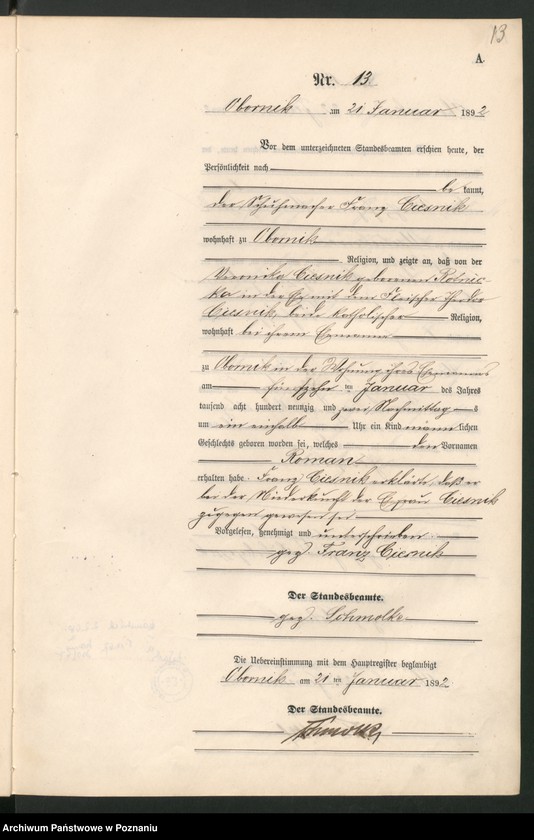 13
A
Nr. 13
Obornik am 21 Januar 1892
Vor dem unterzeichneten Standesbeamten erschien heute, der
Persönlichkeit nach
be kannt,
der Schuhmacher Franz Ciesnik
wohnhaft zu Obornik
Religion, und zeigte an, daß von der
Veronika Ciesnik geborenen Rotnic-
ka in der Ehe mit dem Fleischer
Ciesnik, beide katholischer Religion,
wohnhaft bei ihrem Ehemann
zu Obornik in der Wohnung ihres Ehemannes
am fünfzehn ten Januar des Jahres
tausend acht hundert neunzig und zwei Nachmittag s
um ein einhalb Uhr ein Kind männlichen
Geschlechts geboren worden sei, welches den Vornamen
Roman
erhalten habe. Franz Ciesnik erklärte, daß er
bei der Niederkunft der Ehefrau Ciesnik
zugegen gewesen sei
Vorgelesen, genehmigt und unterschrieben
gez. Franz Ciesnik
Der Standesbeamte.
gez. Schmolke
Die Uebereinstimmung mit dem Hauptregister beglaubigt
Obornik am 21 ten Januar 1892
Der Standesbeamte.
Schmolke
Archiwum Państwowe w Poznaniu